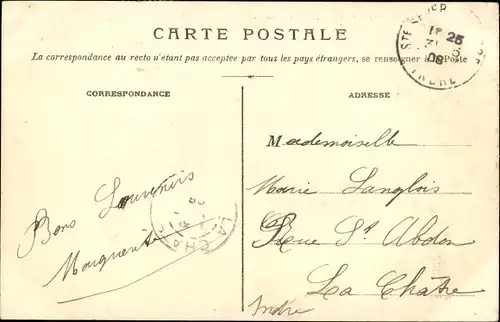 CARTE POSTALE
La correspondance au recto n'étant pas acceptée par tous les pays étrangers, se renseigner à la Poste
CORRESPONDANCE
ADRESSE
Bons Souvenirs
Marguerite
Mademoiselle
Marie Langlois
Rue St Abdon
La Châtre
Indre
STE SEVERE
17 25
08
INDRE
LA CHA